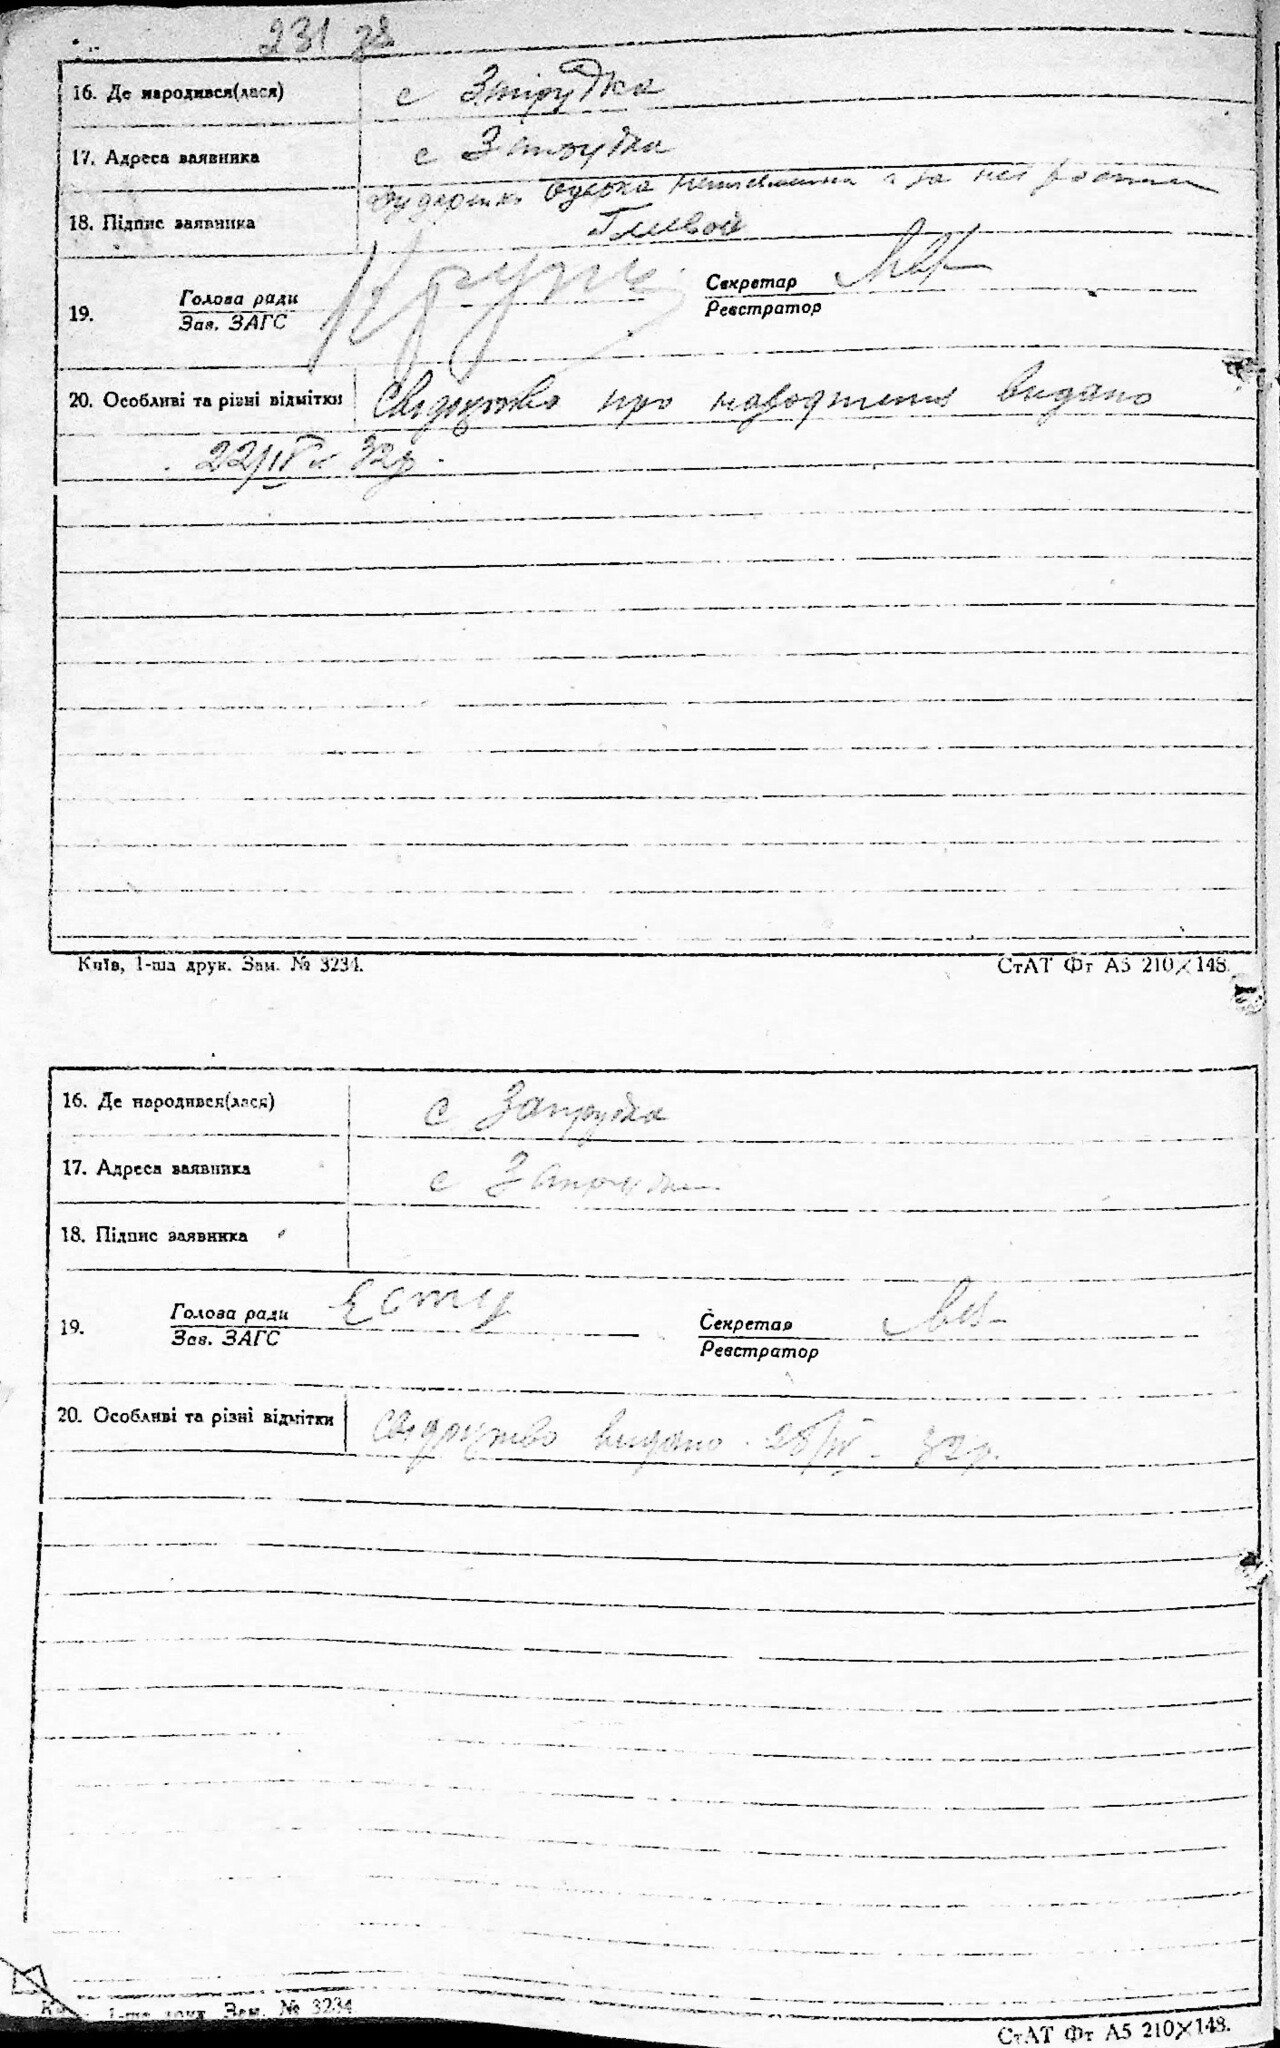 231 зв
16. Де народився(лася) с Запрудка
17. Адреса заявника с Запрудка
неписьменна і за неї
18. Підпис заявника
19. Голова ради Секретар
Зав. ЗАГС Реєстратор
20. Особливі та різні відмітки Свідоцтво про народження видано
22/IV 32р.
Київ, 1-ша друк. Зам. № 3234. СтАТ Фт А5 210×148.
16. Де народився(лася) с Запрудка
17. Адреса заявника с Запрудка
18. Підпис заявника
19. Голова ради Секретар
Зав. ЗАГС Реєстратор
20. Особливі та різні відмітки Свідоцтво видано 28/IV 32р.
1-ша друк. Зам. № 3234
СтАТ Фт А5 210×148.